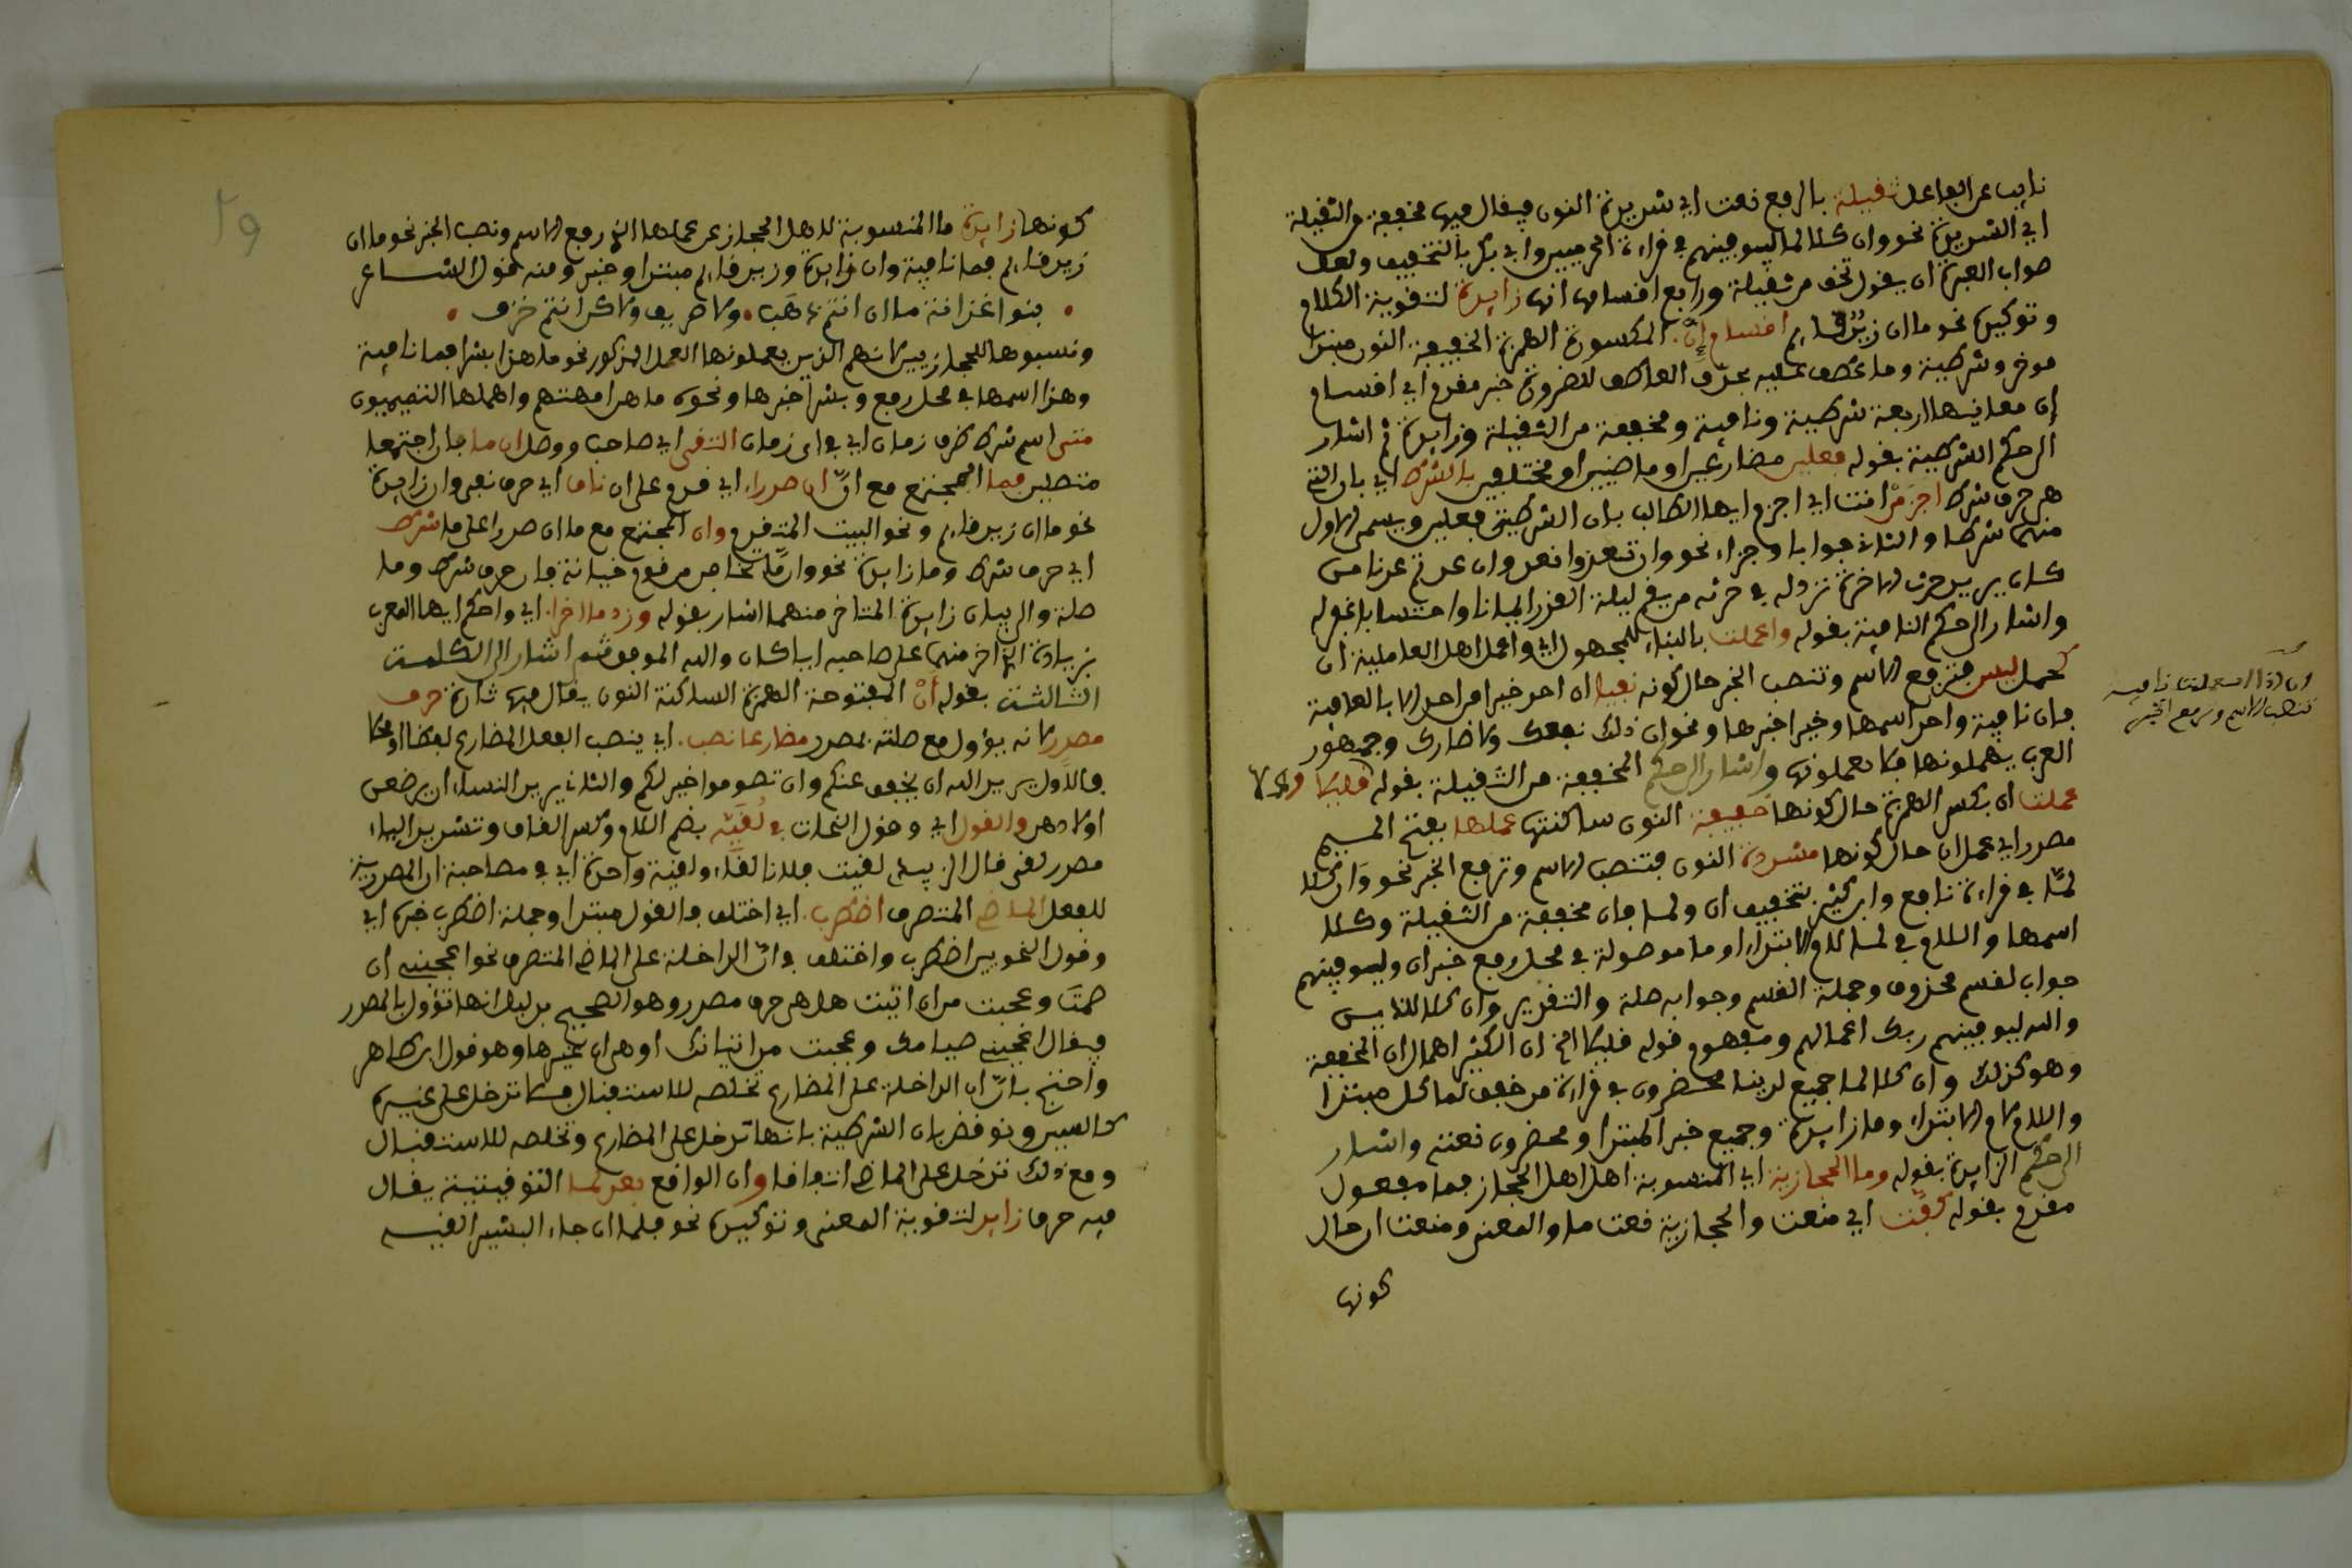 نايب عن الفاعل ثقيلة بالرفع نعت اي شديدة النون فيقال فيها مخففة من الثقيلة
اي الشديدة نحو وان كلا لما ليوفينهم في قراءة الحرميين وابي بكر بالتخفيف ولعل
صواب العبرة ان يقول تخف من ثقيلة ورابع اقسامها انها زايدة لتقوية الكلام
وتوكيده نحو ما ان زيد قايم اقسام إن المكسورة الهمزة الخفيفة النون مبتدا
موخر وشرطية وما عطف عليه بحذف العاطف للضرورة خبر مقدم اي اقسام
إن معانيها اربعة شرطية ونافية ومخففة من الثقيلة وزايدة ثم اشار
الى حكم الشرطية بقوله فعلين مضارعين او ماضيين او مختلفين بالشرط اي بان التي
هي حرف شرط اجزمن انت اي اجزم ايها الطالب بان الشرطية فعلين ويسمى الاول
منهما شرطا والثاني جوابا وجزاء نحو وان تعودوا نعد وان عدتم عدنا من
كان يريد حرث الاخرة نزد له في حرثه من يقم ليلة القدر ايمانا واحتسابا غفر له
واشار الى حكم النافية بقوله واعملت بالبناء للمجهول اي واعمل اهل العاملية ان
كعمل ليس فترفع الاسم وتنصب الخبر حال كونه نفيا ان احد خيرا من احد الا بالعافية
فان نافية واحد اسمها وخيرا خبرها ونحو ان ذلك نفعك ولا ضارك وجمهور
العرب يهملونها فلا يعملونها واشار الى حكم المخففة من الثقيلة بقوله قليلا
عملت ان بكسر الهمزة حال كونها خفيفة النون ساكنتها عملها بفتح الميم
مصدر اي عمل ان حال كونها مشددة النون فتنصب الاسم وترفع الخبر نحو وان كلا
لما في قراءة نافع وابن كثير بتخفيف ان ولما فان مخففة من الثقيلة وكلا
اسمها واللام في لما للام الابتداء وما موصولة في محل رفع خبر ان وليوفينهم
جواب لقسم محذوف وجملة القسم وجوابه صلة والتقدير وان كلا للذين
والله ليوفينهم ربك اعمالهم ومفهوم قوله قليلا الخ ان الكثير اهمال ان المخففة
وهو كذلك وان كلا لما جميع لدينا محضرون في قراءة من خفف لما كل مبتدا
واللام لام الابتداء وما زايدة وجميع خبر المبتدا ومحضرون نعته واشار
الى حكم الزايدة بقوله وما الحجازية اي المنسوبة اهل اهل الحجاز فما مفعول
مقدم بقوله كفت اي منعت والحجازية نعت ما والمعنى ومنعت ان حال
كونها
ان اذا استعملت نافية
تنصب الاسم وترفع الخبر
كونها زايدة ما المنسوبة للاهل الحجاز عن عملها الذي رفع الاسم ونصب الخبر نحو ما ان
زيد قايم فما نافية وان زايدة وزيد قايم مبتدا وخبر ومنه قول الشاعر
بنو اغدانة ما ان انتم ذهب • ولا صريف ولا كن انتم خزف •
ونسبوها للحجازيين لانهم الذين يعملونها العمل المذكور نحو ما هذا بشرا فما نافية
وهذا اسمها في محل رفع وبشرا خبرها ونحو ما هن امهتهم واهملها التميميون
متى اسم شرط ظرف زمان اي في اى زمان التقى اي صاحب ووصل ان ما بان اجتمعا
متصلين فما المجتمع مع انّ ان صدرا اي قدم على ان ناف اي حرف نفي وان زايدة
نحو ما ان زيد قايم ونحو البيت المتقدم وان المجتمع مع ما ان صدرا على ما شرط
اي حرف شرط وما زايدة نحو وامّا تخافن من قوم خيانة فان حرف شرط وما
صلة والى بيان زايدة المتاخر منهما اشار بقوله وزد ما اخرا اي واحكم ايها المعرب
بزيادة الذي اخر منهما على صاحبه ايا كان والله الموفق ثم اشار الى الكلمة
الثالثة بقوله أنْ المفتوحة الهمزة الساكنة النون يقال فيها تارة حرف
مصدر لانه يؤول مع صلته بمصدر مضارعا نصب اي ينصب الفعل المضارع لفظا او محلا
فالاول يريد الله ان يخفف عنكم وان تصوموا خير لكم والثاني يريد النساء ان يرضعن
اولادهن والقول اي وقول النحات في لُقيّه بضم اللام وكسر القاف وتشديد الياء
مصدر لقى قال الزبيدي لقيت فلانا لقاء ولقية واحدة اي في مصاحبة ان المصدرية
للفعل الماضي المتصرف اضطرب اي اختلف فالقول مبتدا وجملة اضطرب خبره اي
وقول النحويين اضطرب واختلف في انّ الداخلة على الماضي المتصرف نحو اعجبني ان
صمتَ وعجبت من ان اتيت هل هي حرف مصدر وهو الصحيح بدليل انها تؤول بالمصدر
فيقال اعجبني صيامك وعجبت من اتيانك او هي ان غيرها وهو قول ابن طاهر
واحتج بانّ ان الداخلة على المضارع تخلصه للاستقبال فلا تدخل على غيره
كالسين ونوقض بان الشرطية بانها تدخل على المضارع وتخلصه للاستقبال
ومع ذلك تدخل على الماضي اتفاقا وان الواقع بعد لما التوقيتية يقال
فيه حرف زايد لتقوية المعنى وتوكيده نحو فلما ان جاء البشير القيه